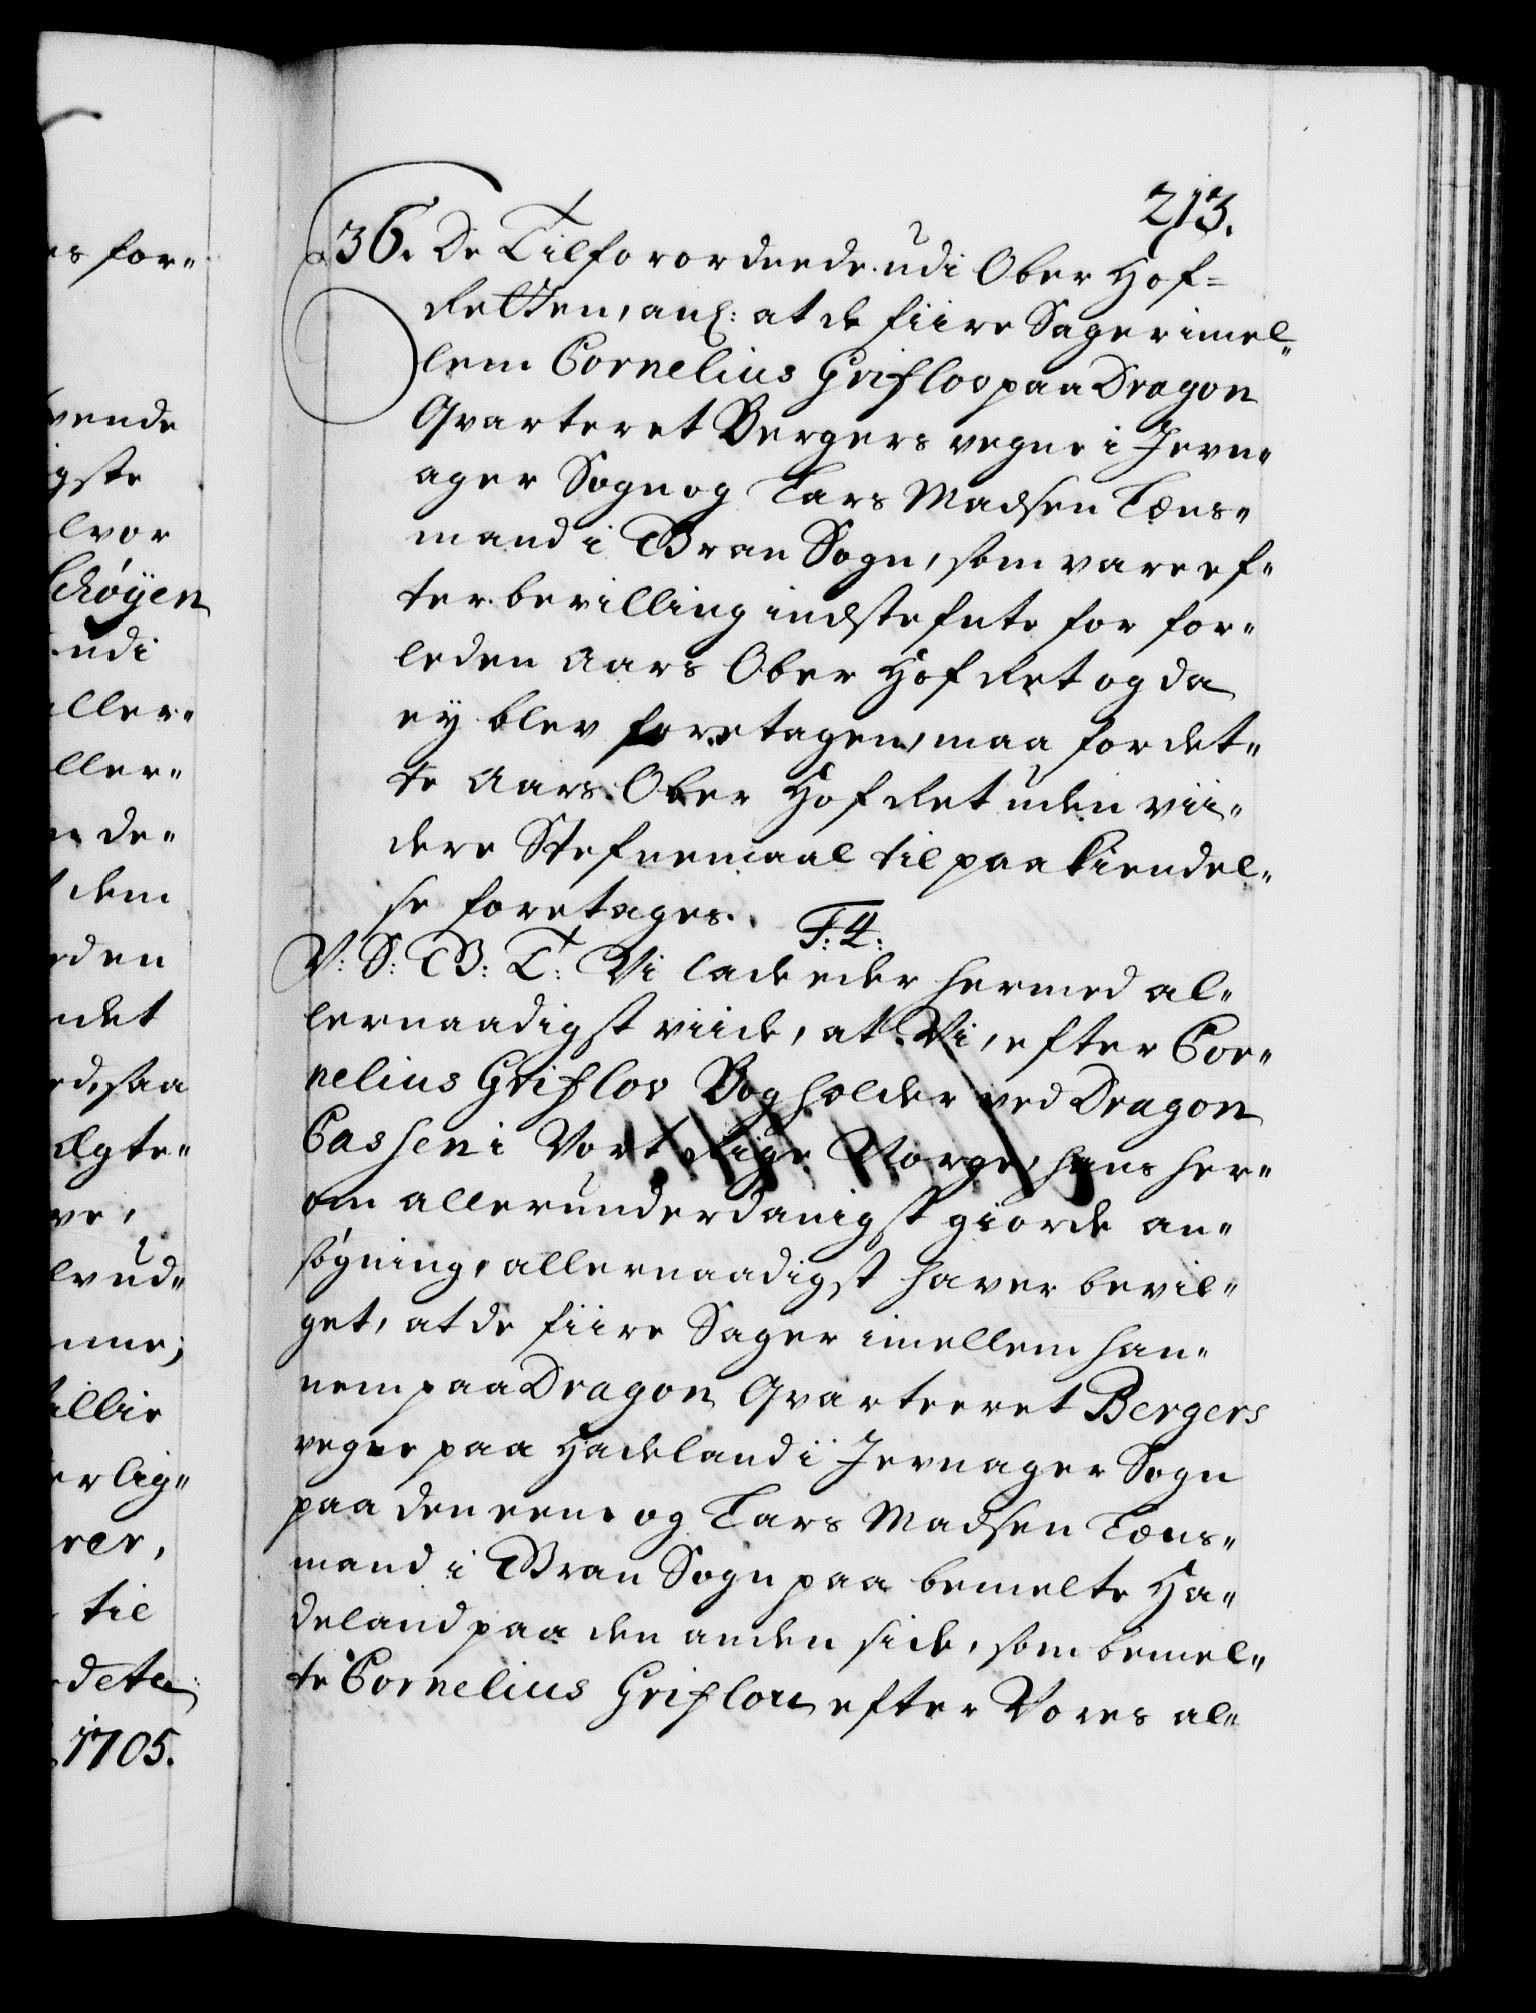 213.
36. De Tilforordnede udi Ober Hof-
Retten, anl: at de fiire Sager imel„
lem Cornelius Griflov paa Dragon
Qvarteret Bergers vegne i Jevn„
ager Sogn og Lars Madsen Lens„
mand i Gran Sogn, som vare ef„
ter bevilling indstefnte for for„
leden Aars Ober Hof Ret og da
ey blev foretagen, maa for det„
te Aars Ober Hof Ret uden vii„
dere Stefnemaal til paakiendel„
se foretages. F: 4:
V: S: G: T: Vi lade eder hermed al„
lernaadigst viide, at Vi, efter Cor„
nelius Griflov Bogholder ved Dragon
Cassen i Vort Rige Norge, hans her„
om allerunderdanigst giorde an„
søgning, allernaadigst haver bevil„
get, at de fiire Sager imellem han„
nem paa Dragon Qvarteeret Bergers
vegne paa Hadeland i Jevnager Sogn
paa den eene og Lars Madsen Lens„
mand i Gran Sogn paa bemelte Ha„
deland paa den anden side, som bemel„
te Cornelius Griflou efter Vores al„
es for„
vende
gste
lvor
Chøyen
udi
aller„
ller„
de„
dem
den
det
ed, saa
ægte„
ve,
lvud„
nne;
illie
erlig„
rer,
til
data
1705.